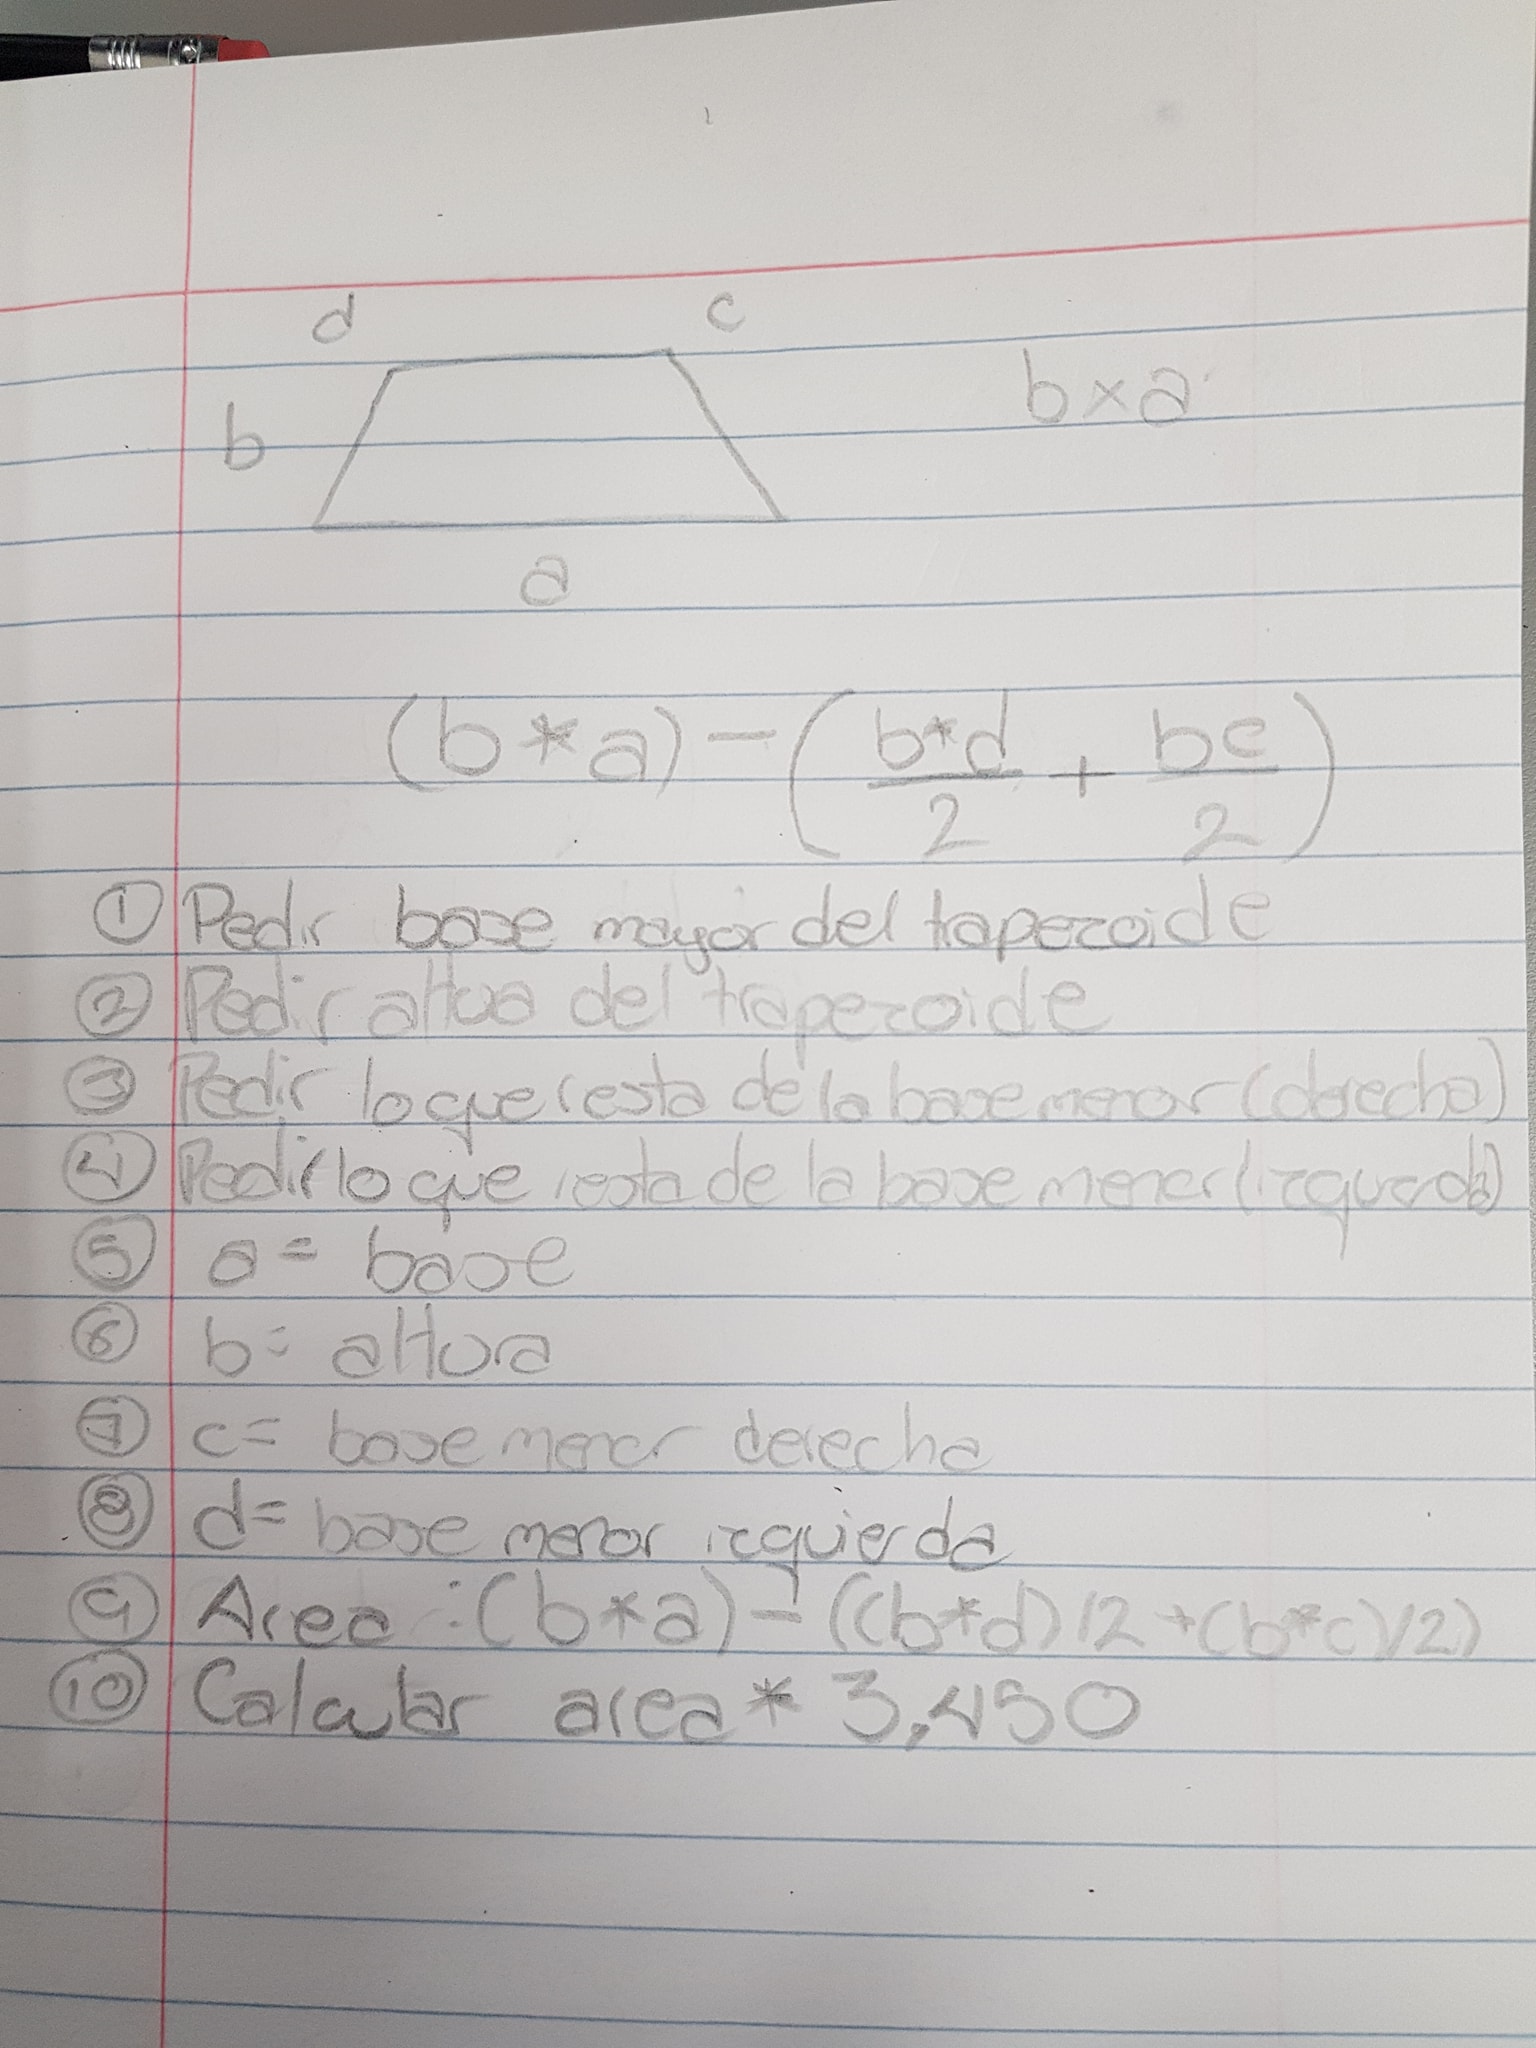 d c
b b x a
a
(b * a) - ( b*d / 2 + bc / 2 )
① Pedir base mayor del traperzoide
② Pedir altura del traperzoide
③ Pedir lo que resta de la base menor (derecha)
④ Pedir lo que resta de la base menor (izquierda)
⑤ a = base
⑥ b = altura
⑦ c = base menor derecha
⑧ d = base menor izquierda
⑨ Area : (b*a) - ((b*d)/2 + (b*c)/2)
⑩ Calcular area * 3,450